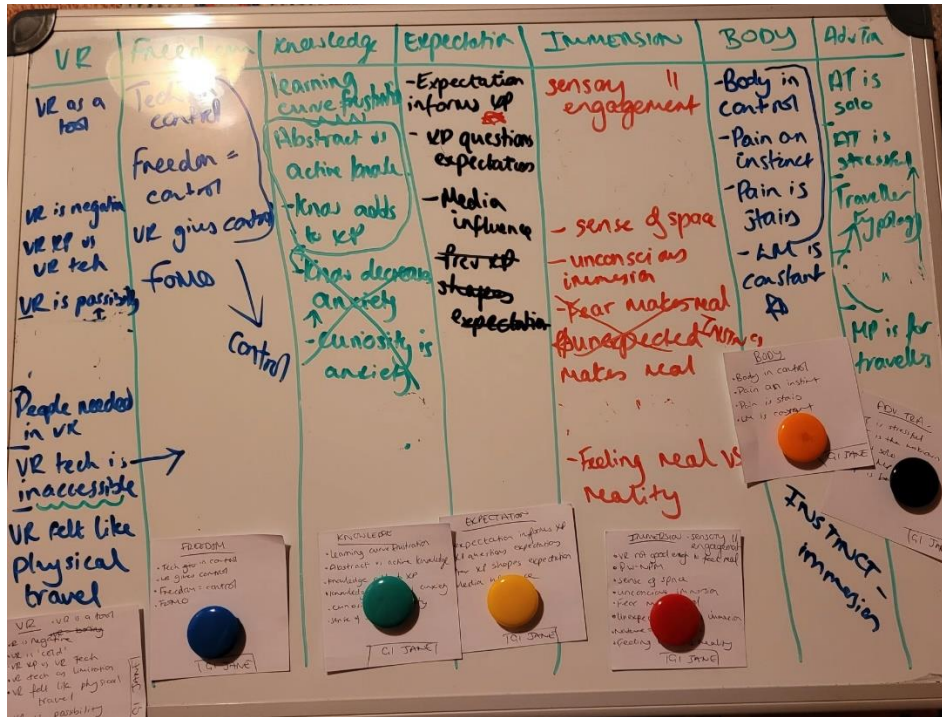 VR
VR as a
tool
VR is negative
VR XP vs
VR tech
VR is possibility
People needed
in VR
VR tech is
inaccessible
VR felt like
physical
travel
Freedom
Tech in
control
Freedom =
control
VR gives control
FOMO
Control
Knowledge
learning
curve frustration
Abstract vs
active knowle
- Know adds
to XP
- Know decreases
anxiety
- curiosity is
anxiety
Expectation
- Expectation
informs XP
- XP questions
expectation
- Media
influence
- Prev XP
shapes
expectation
IMMERSION
sensory "
engagement
- sense of space
- unconscious
immersion
- Fear makes real
unexpected
makes real
- Feeling real vs
reality
BODY
- Body in
control
- Pain an
instinct
- Pain is
stairs
- LM is
constant
INSTINCT -
immersion
Adv Tra
AT is
solo
AT is
stressful
Traveller
typology
MP is for
travellers
VR · VR as a tool
VR is negative
VR is 'cold'
VR XP vs VR Tech
VR tech as limitation
VR felt like physical
travel
is possibility
GI JANE
FREEDOM
· Tech in control
· VR gives control
· Freedom = control
· FOMO
GI JANE
KNOWLEDGE
· Learning curve frustration
· Abstract vs active knowledge
GI JANE
EXPECTATION
expectation informs XP
XP questions expectations
XP shapes expectation
Media
GI JANE
IMMERSION - sensory "
engagement
· VR not good enough to feel real
· Sense of space
· Unconscious immersion
· Fear
· Feeling reality
GI JANE
BODY
· Body in control
· Pain an instinct
· Pain is stairs
· LM is constant
GI JANE
ADV TRA-
is stressful
is the unknown
solo
GI JANE